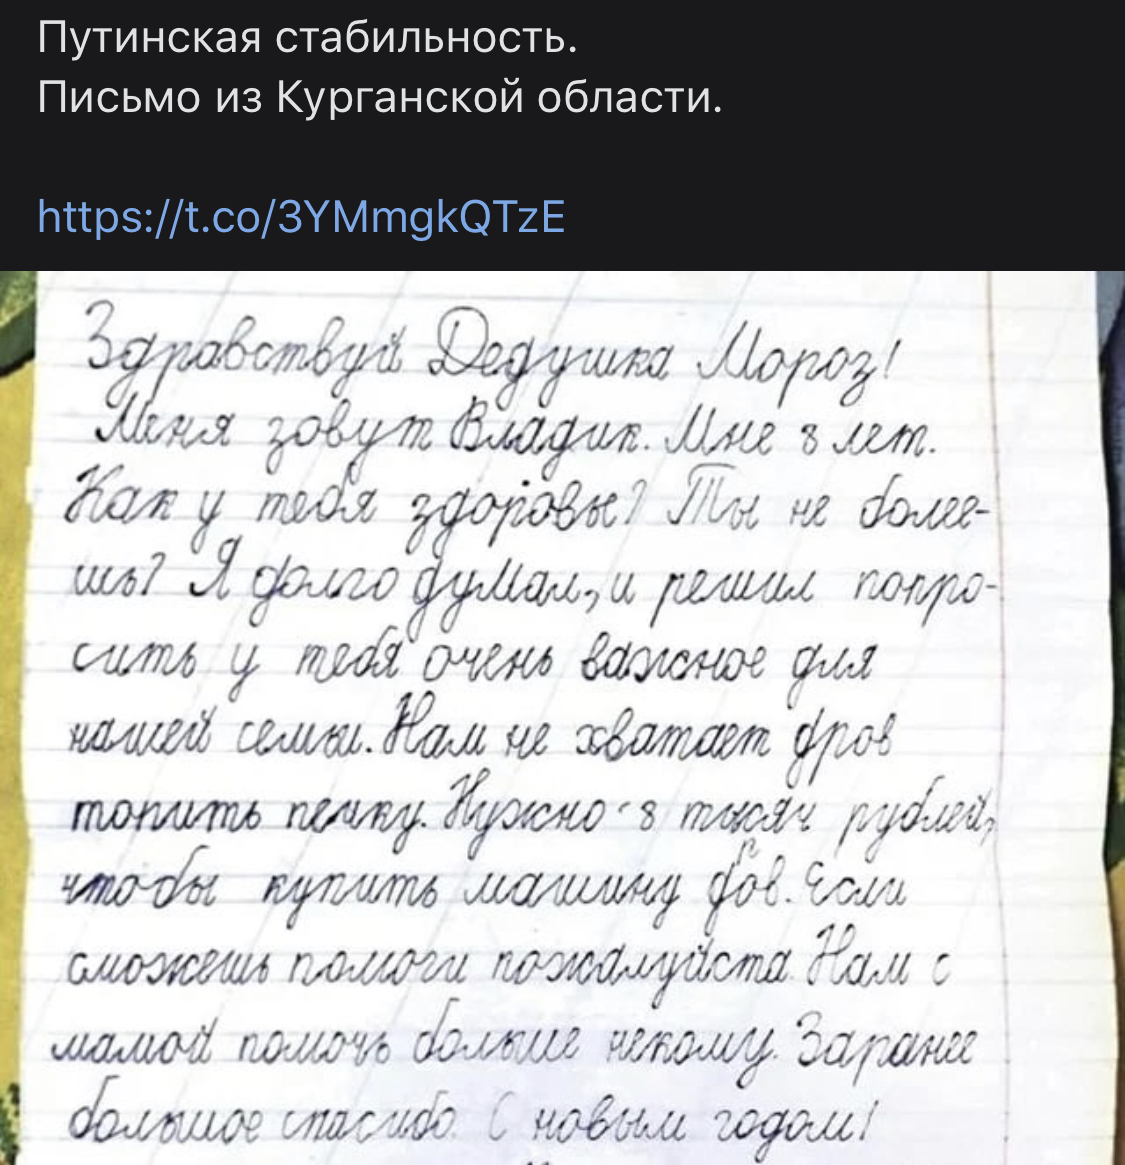 Путинская стабильность.
Письмо из Курганской области.
https://t.co/3YMmgkQTzE
Здравствуй Дедушка Мороз!
Меня зовут Владик. Мне 8 лет.
Как у тебя здоровье? Ты не более-
шь? Я долго думал, и решил попро-
сить у тебя очень важное для
нашей семьи. Нам не хватает дров
топить печку. Нужно 8 тысяч рублей,
чтобы купить машину дров. Если
сможешь помоги пожалуйста. Нам с
мамой помочь больше некому. Заранее
большое спасибо. С новым годом!